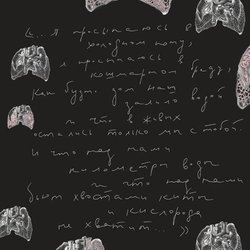 «...Я просыпаюсь в
холодном поту,
я просыпаюсь в
кошмарном бреду,
как будто дом наш
залило водой
и что в живых
остались только мы с тобой.
И что над нами
километры воды
и что над нами
бьют хвостами киты
и кислорода
не хватит...»